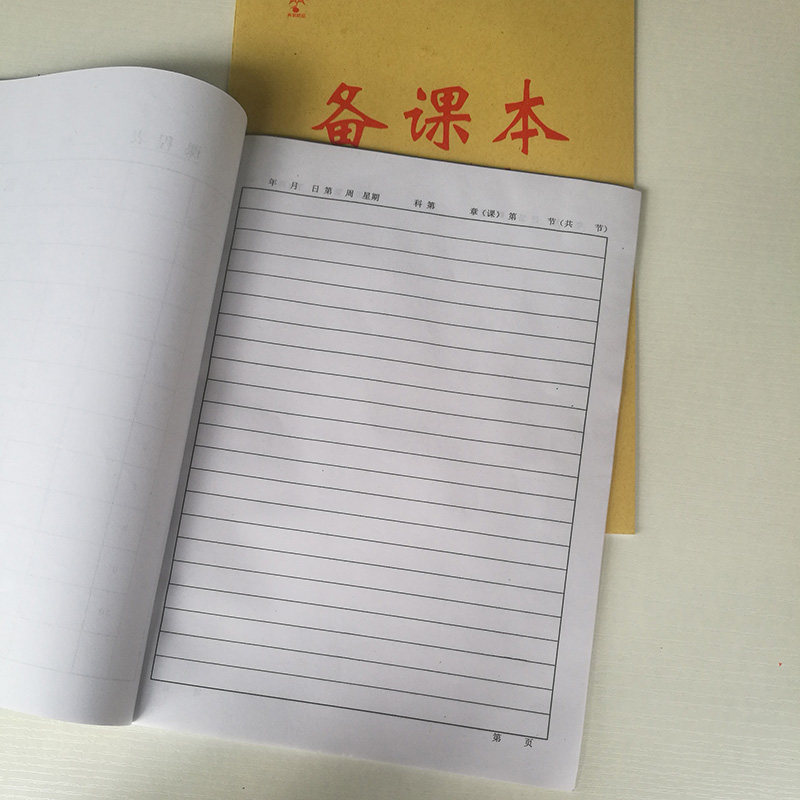 备课本
课程表
年 月 日 第 周 星期 科 第 章(课) 第 节(共 节)
第 页